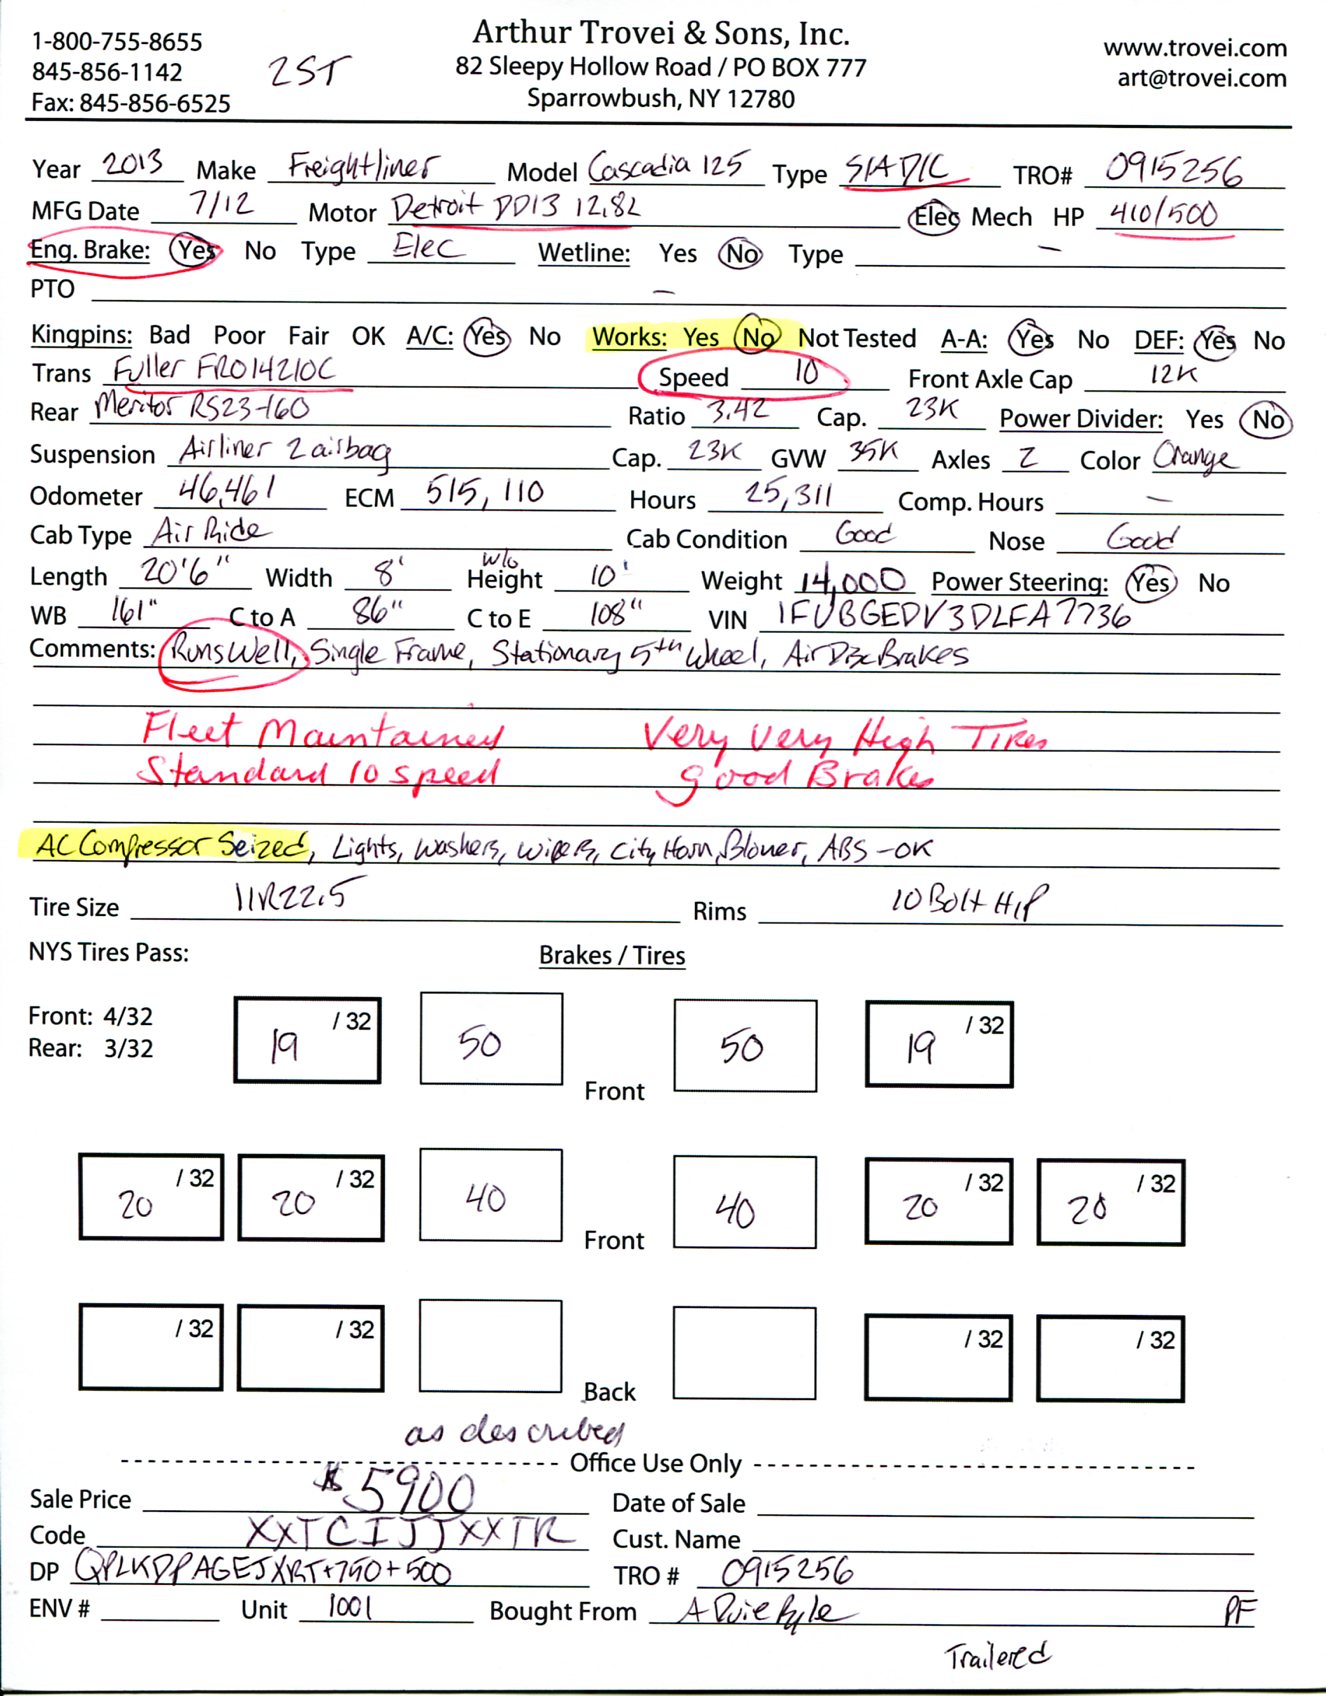 1-800-755-8655
845-856-1142
Fax: 845-856-6525
2ST
Arthur Trovei & Sons, Inc.
82 Sleepy Hollow Road / PO BOX 777
Sparrowbush, NY 12780
www.trovei.com
art@trovei.com
Year 2013 Make Freightliner Model Cascadia 125 Type S/A D/C TRO# 0915256
MFG Date 7/12 Motor Detroit DD13 12.8L Elec Mech HP 410/500
Eng. Brake: Yes No Type Elec Wetline: Yes No Type —
PTO —
Kingpins: Bad Poor Fair OK A/C: Yes No Works: Yes No Not Tested A-A: Yes No DEF: Yes No
Trans Fuller FRO14210C Speed 10 Front Axle Cap 12K
Rear Meritor RS23-160 Ratio 3.42 Cap. 23K Power Divider: Yes No
Suspension Airliner 2 airbag Cap. 23K GVW 35K Axles 2 Color Orange
Odometer 46,461 ECM 515,110 Hours 25,311 Comp. Hours —
Cab Type Air Ride Cab Condition Good Nose Good
Length 20'6" Width 8' w/o Height 10' Weight 14,000 Power Steering: Yes No
WB 161" C to A 86" C to E 108" VIN 1FUBGEDV3DLFA7736
Comments: Runs Well, Single Frame, Stationary 5th Wheel, Air Disc Brakes
Fleet Maintained Very Very High Tires
Standard 10 speed good Brakes
AC Compressor Seized, Lights, Washers, Wipers, City Horn, Blower, ABS - OK
Tire Size 11R22.5 Rims 10 Bolt H/P
NYS Tires Pass: Brakes / Tires
Front: 4/32
Rear: 3/32
19 /32 50 Front 50 19 /32
20 /32 20 /32 40 Front 40 20 /32 20 /32
/32 /32 Back /32 /32
as described
Office Use Only
Sale Price $5900 Date of Sale
Code XXTCIJJXXTR Cust. Name
DP QPLKDPAGEJXRT+750+500 TRO # 0915256
ENV # Unit 1001 Bought From A Duie Pyle PF
Trailered